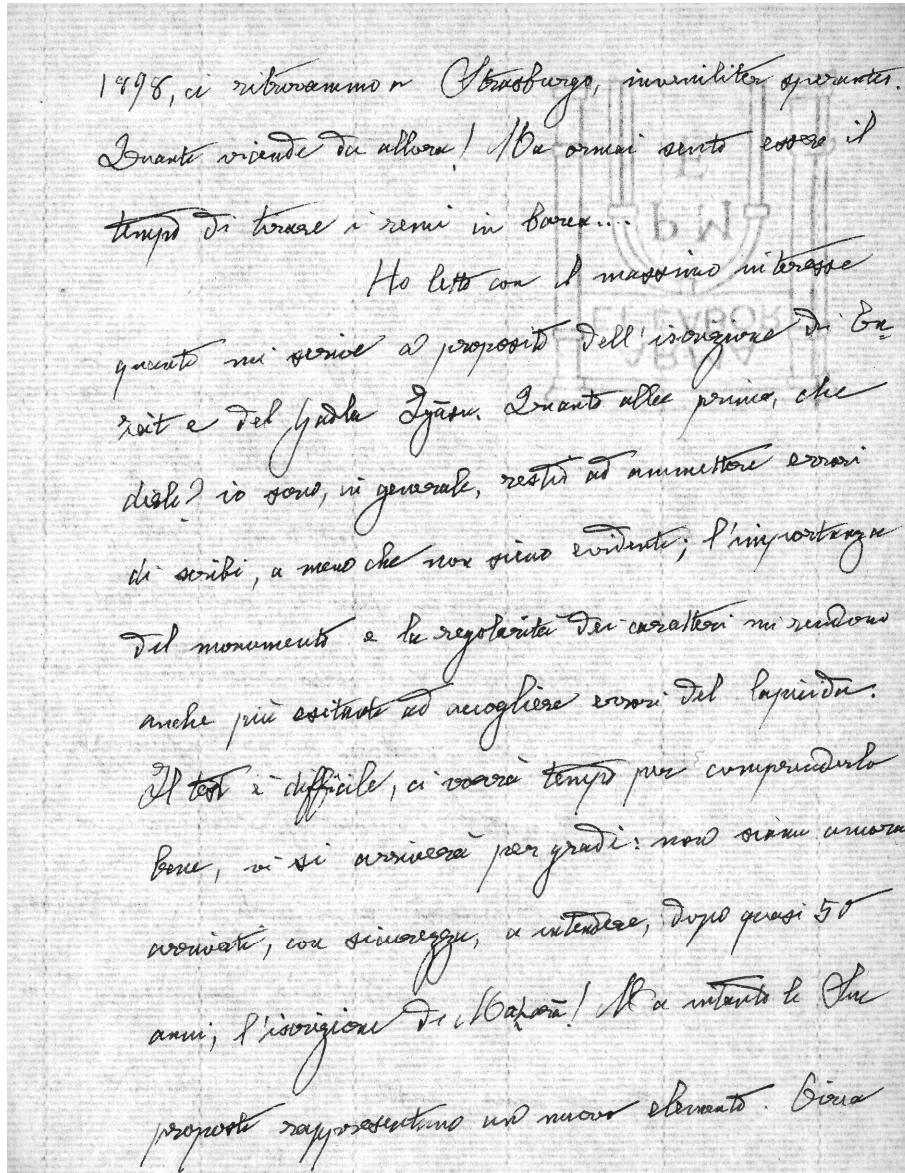 1898, ci ritrovammo a Strasburgo, iuveniliter sperantes.
Quante vicende da allora! Ma ormai sento essere il
tempo di tirare i remi in barca....
Ho letto con il massimo interesse
quanto mi scrive a proposito dell'iscrizione di En-
zait e del Gadla Iyāsu. Quanto alla prima, che
dirle? io sono, in generale, restio ad ammettere errori
di scribi, a meno che non sieno evidenti; l'importanza
del monumento e la regolarità dei caratteri mi rendono
anche più esitante ad accogliere errori del lapicida.
Il testo è difficile, ci vorrà tempo per comprenderlo
bene, vi si arriverà per gradi: non siamo ancora
arrivati, con sicurezza, a intendere, dopo quasi 50
anni, l'iscrizione di Maṭarā! Ma intanto le Sue
proposte rappresentano un nuovo elemento. Circa
P M
LABOR